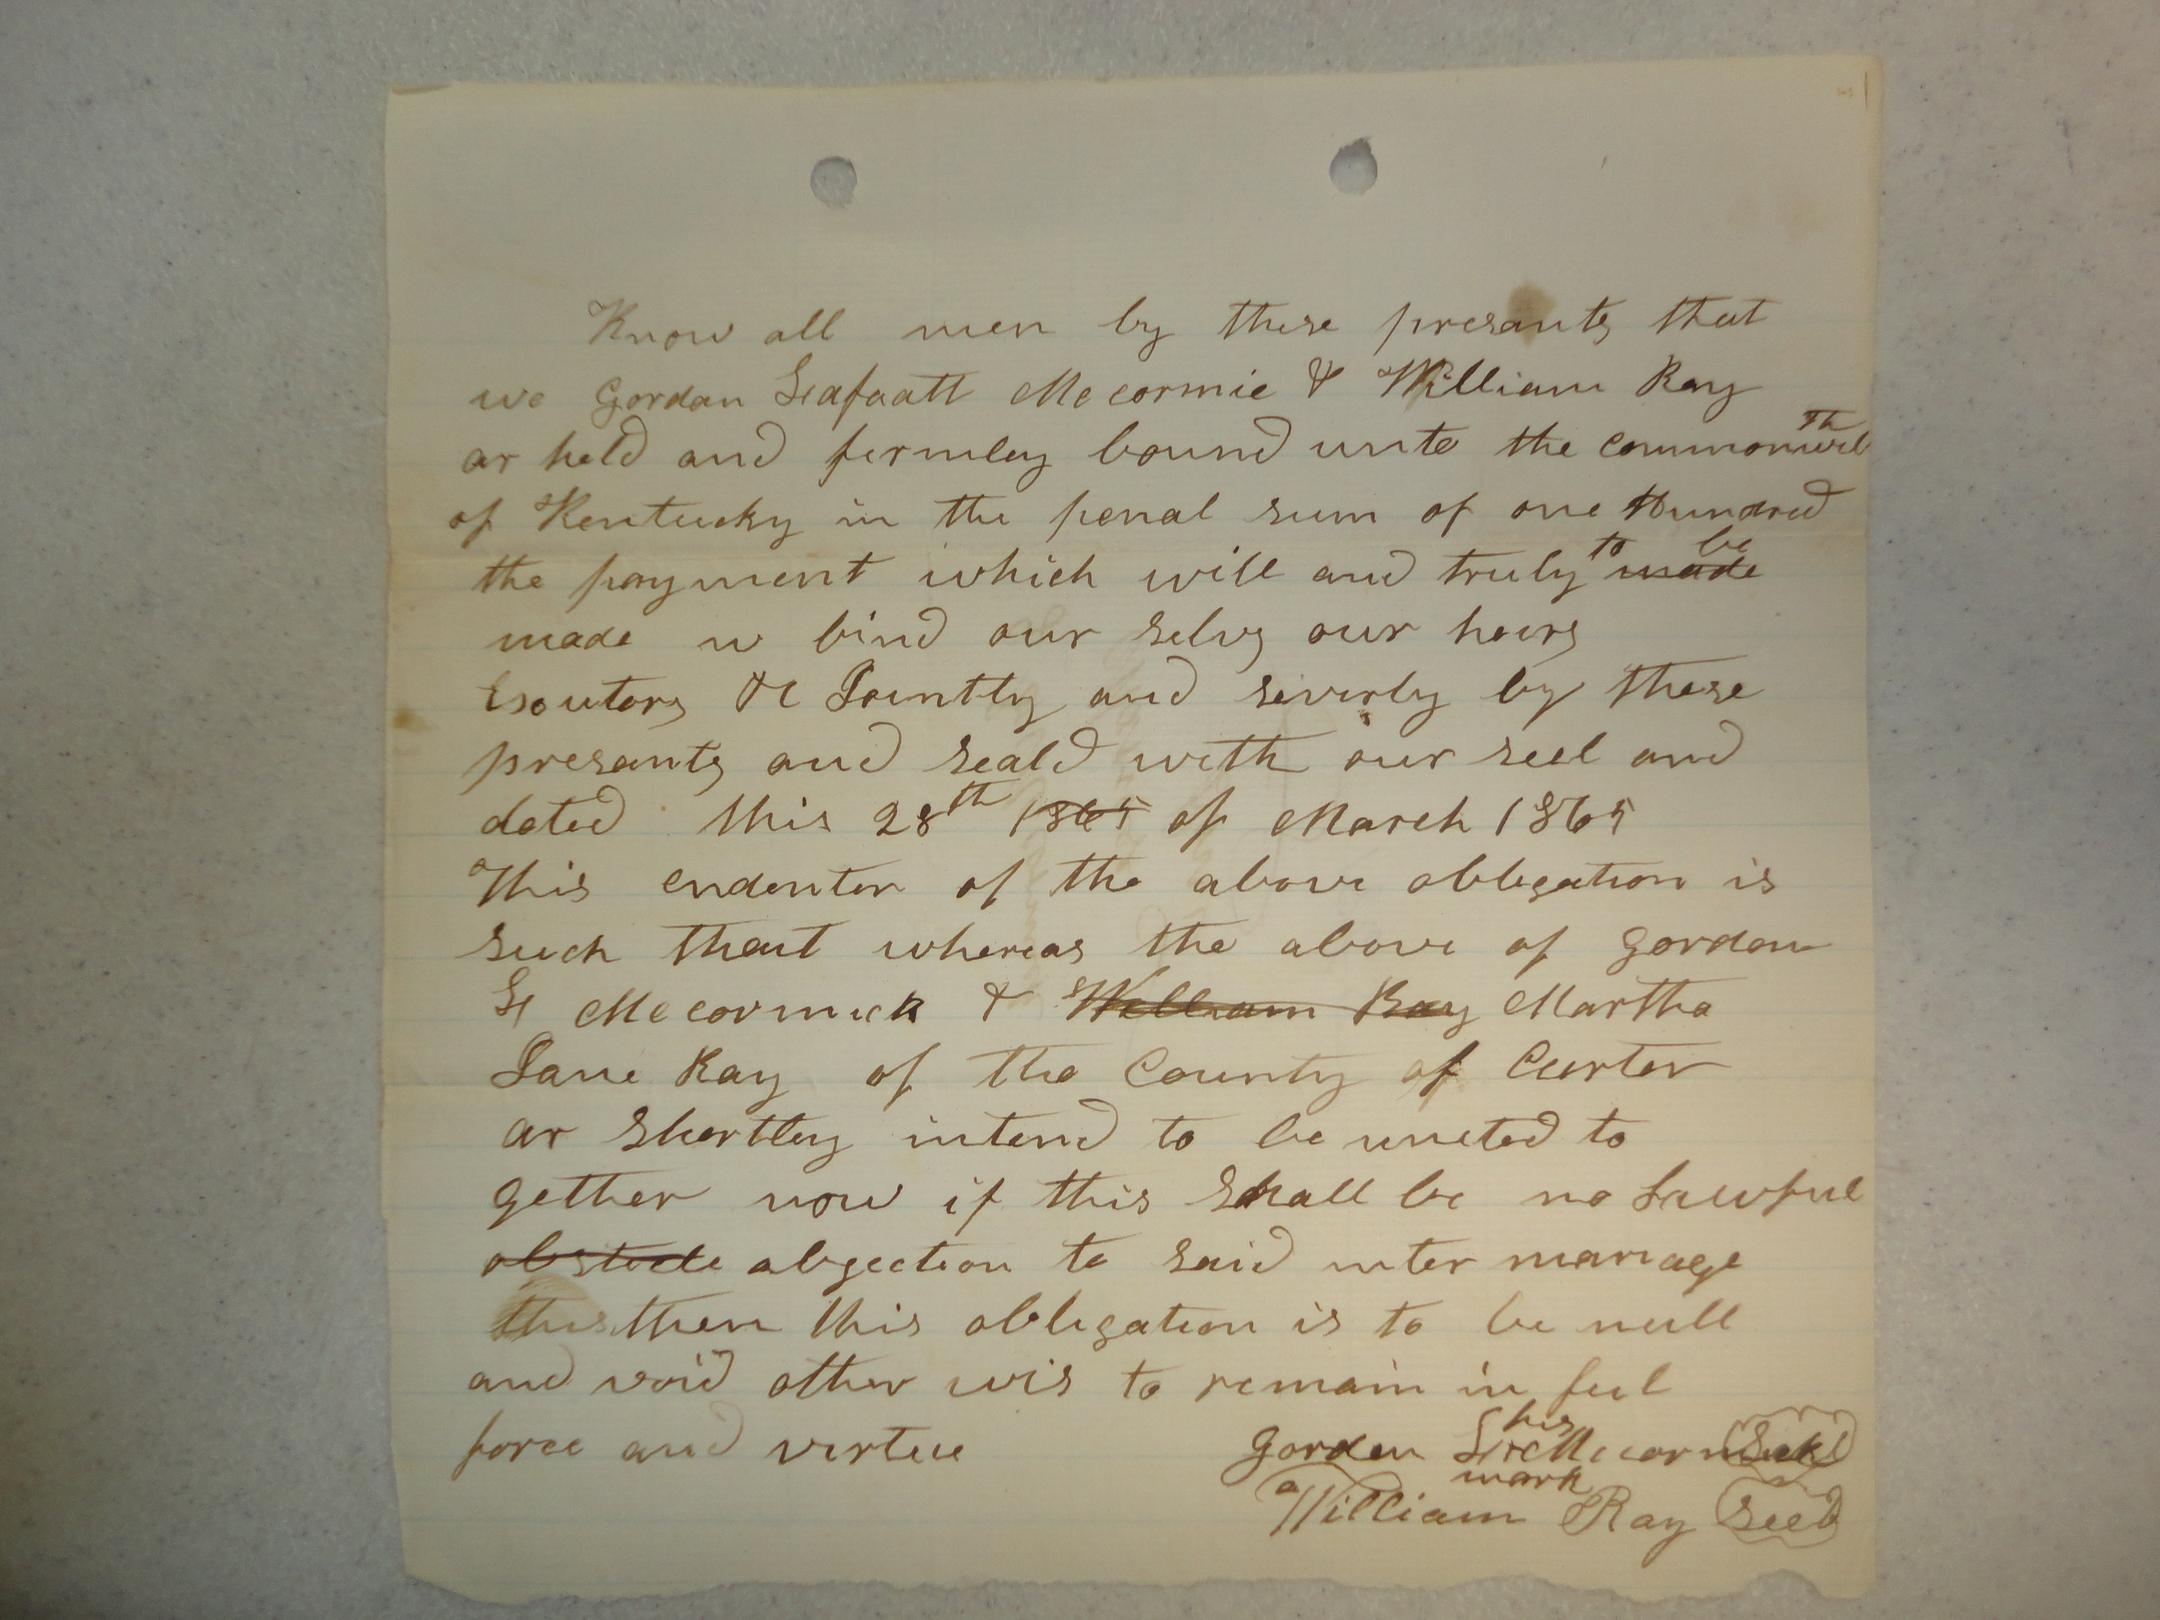 Know all men by these presants that
we Gordan Lafaatt Mccormic & William Ray
ar held and fermley bound unto the commonwelth
of Kentucky in the penal sum of one Hundred
the payment which will and truly to be made
made w bind our selvs our heirs
Exoutors &c Jountly and severly by these
presants and seald with our seel and
dated this 28th 1865 of March 1865
This endenter of the above obbligation is
such that whereas the above of Gordan
L Mccormick & William Ray Martha
Jane Ray of the County of Carter
ar Shortley intend to be uneted to
gether now if this Shall be no Lawful
obstecle abjection to said inter marriage
this then this obbligation is to be null
and void other wis to remain in full
force and vertue
Gordan L his x mark Mccormick Seal
William Ray Seal